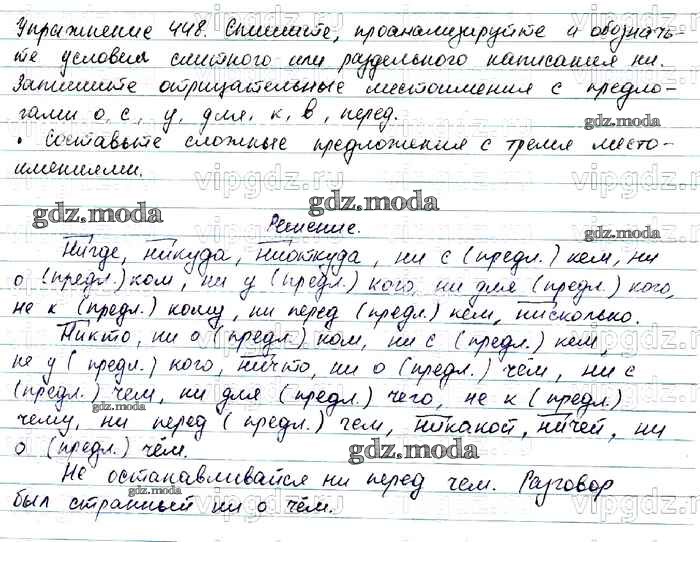 Упражнение 448. Спишите, проанализируйте и обозначь-
те условия слитного или раздельного написания ни.
Запишите отрицательные местоимения с предло-
гами о, с, у, для, к, в, перед.
gdz.moda
• Составьте сложные предложения с тремя место-
имениями.
vipgdz.ru
gdz.moda gdz.moda
Решение.
gdz.moda
Нигде, никуда, ниоткуда, ни с (предл.) кем, ни
о (предл.) ком, ни у (предл.) кого, ни для (предл.) кого,
не к (предл.) кому, ни перед (предл.) кем, нисколько.
Никто, ни о (предл.) ком, ни с (предл.) кем,
не у (предл.) кого, ничто, ни о (предл.) чём, ни с
(предл.) чем, ни для (предл.) чего, не к (предл.)
gdz.moda
чему, ни перед (предл.) чем, никакой, ничей, ни
о (предл.) чём.
gdz.moda
Не останавливайся ни перед чем. Разговор
был странный ни о чём.